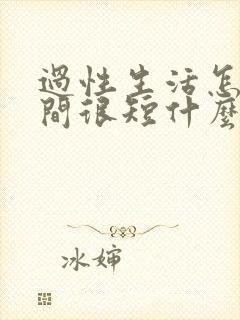 過性生活怎
間很短什麼
冰婶